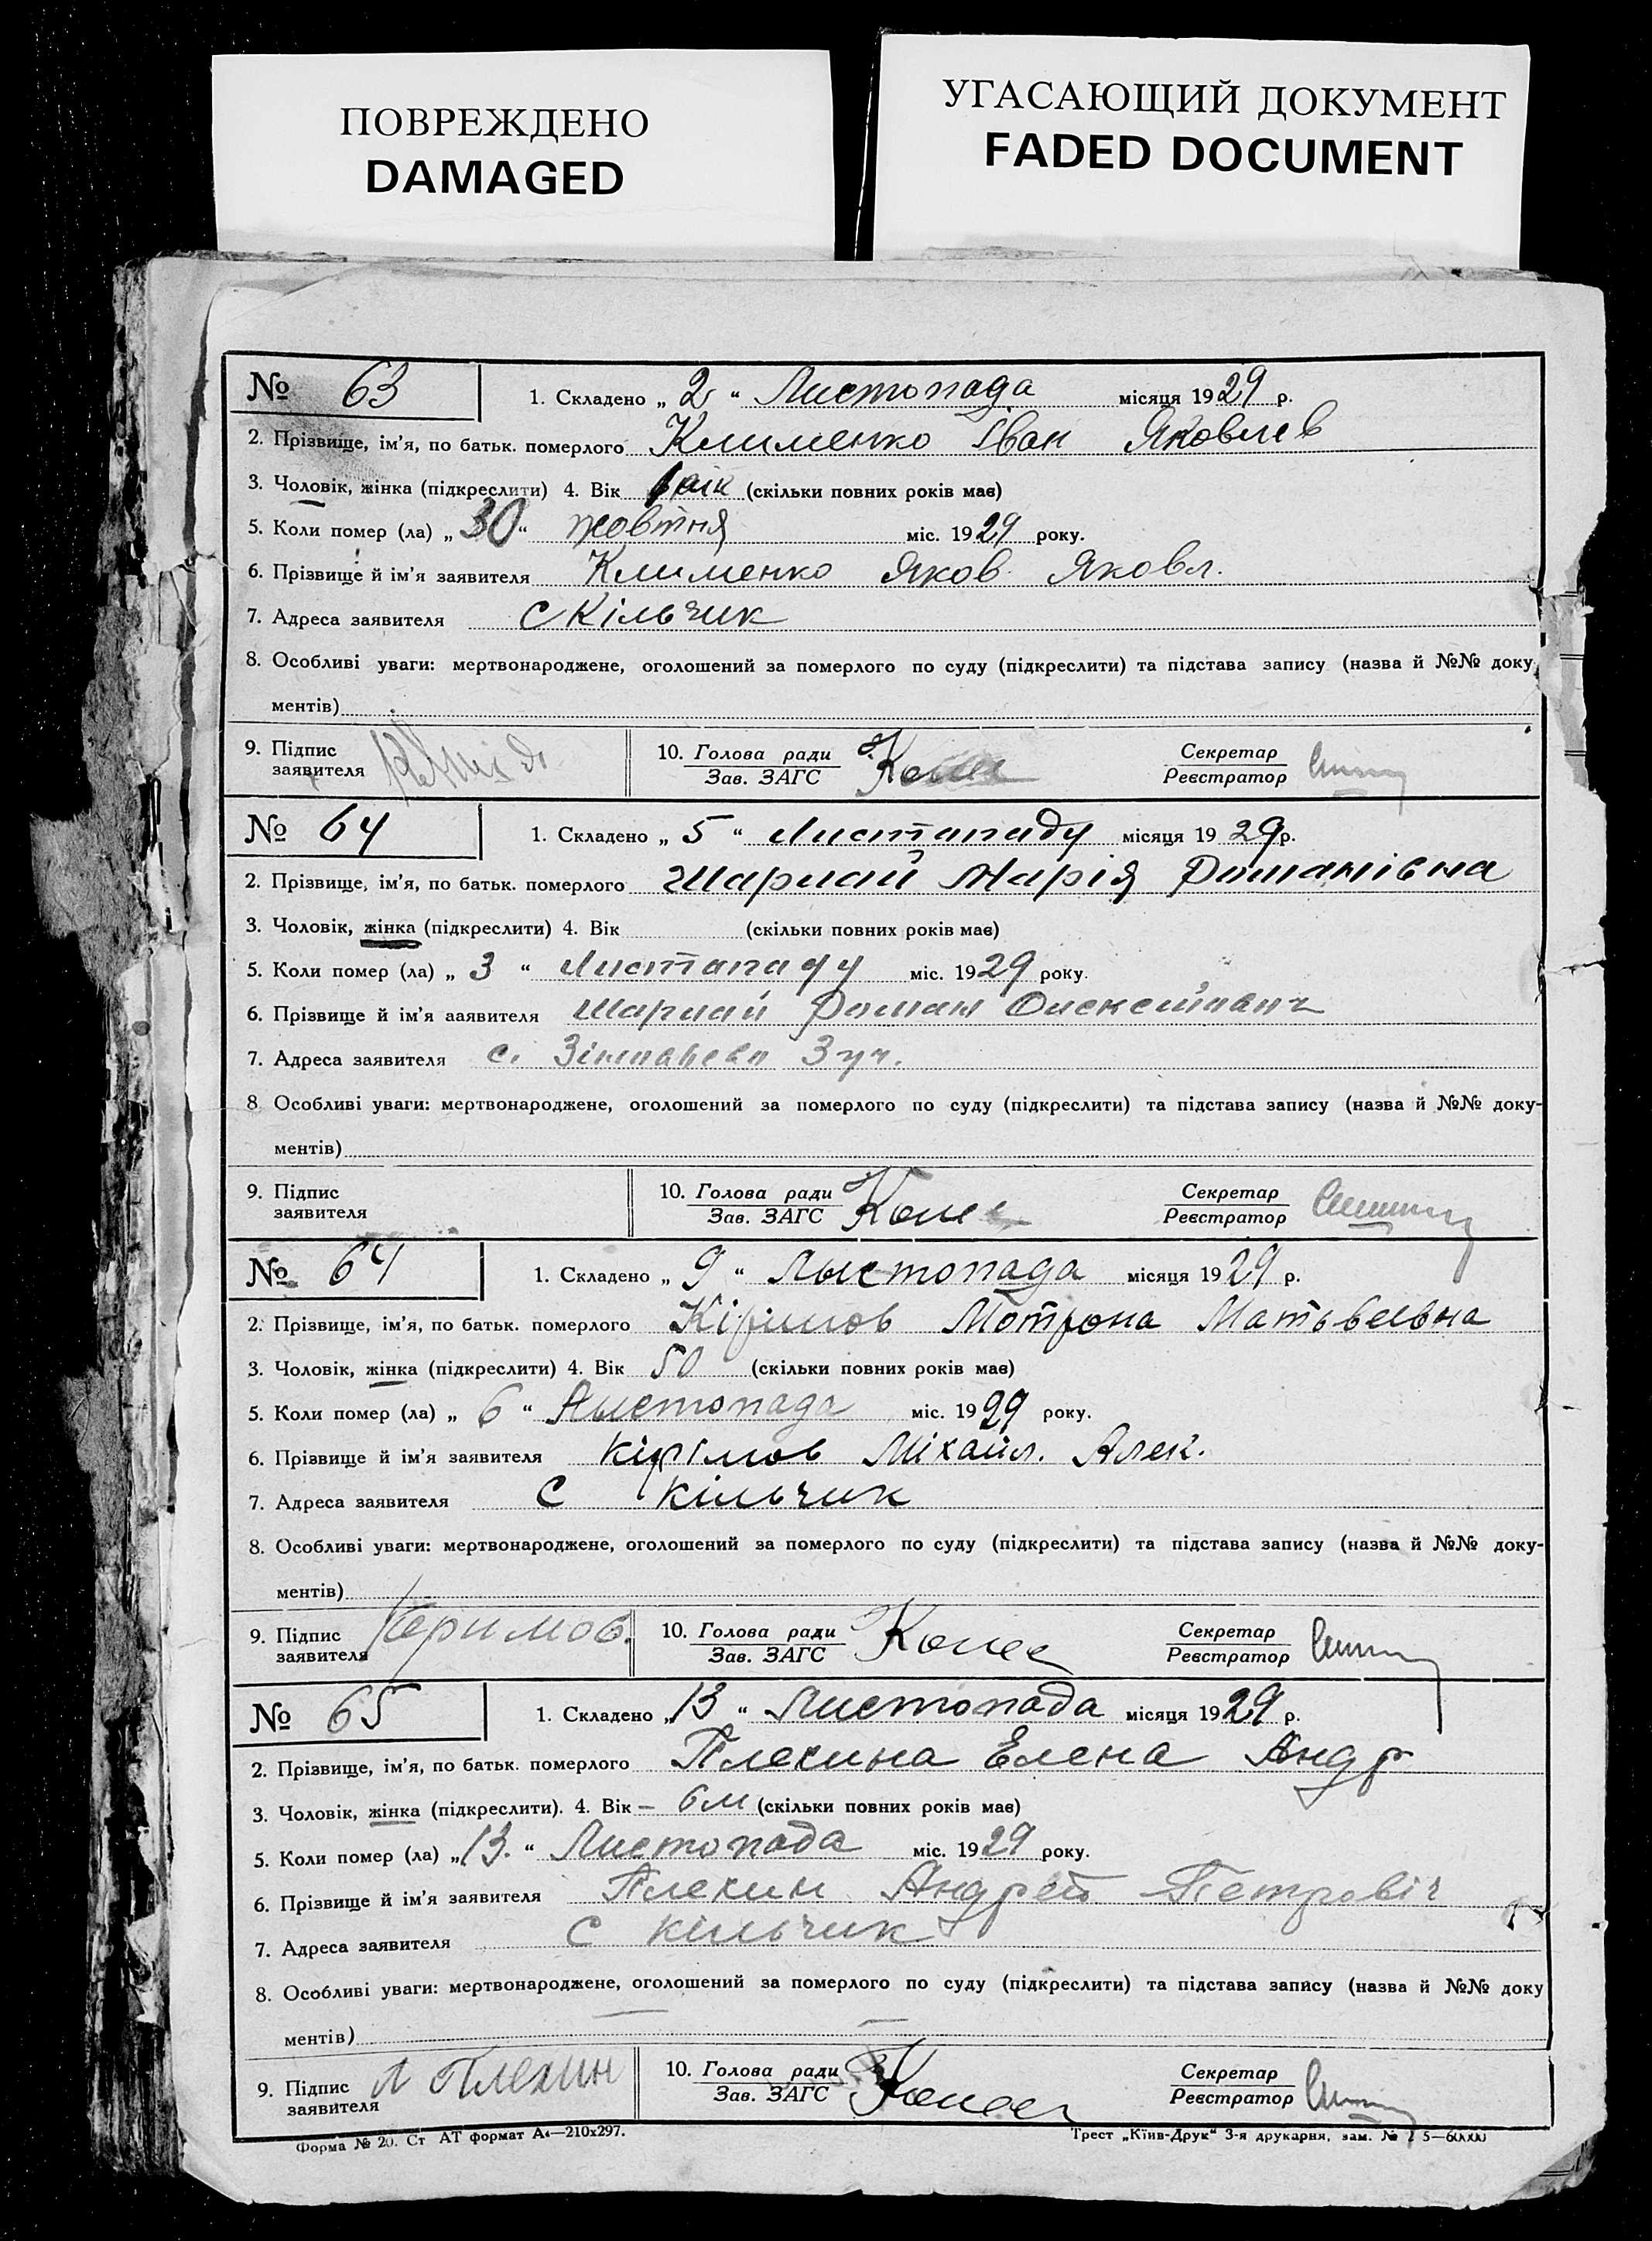 ПОВРЕЖДЕНО
DAMAGED
УГАСАЮЩИЙ ДОКУМЕНТ
FADED DOCUMENT
№ 63 1. Складено „ 2 “ Листопада місяця 1929 р.
2. Прізвище, ім'я, по батьк. померлого Клименко Іван Яковлев
3. Чоловік, жінка (підкреслити) 4. Вік 1 рік (скільки повних років має)
5. Коли помер (ла) „ 30 “ жовтня міс. 1929 року.
6. Прізвище й ім'я заявителя Клименко Яков Яковл.
7. Адреса заявителя с Кільчик
8. Особливі уваги: мертвонароджене, оголошений за померлого по суду (підкреслити) та підстава запису (назва й №№ доку
ментів)
9. Підпис заявителя 10. Голова ради Зав. ЗАГС Секретар Реєстратор
№ 64 1. Складено „ 5 “ Листападу місяця 1929 р.
2. Прізвище, ім'я, по батьк. померлого Шарлай Марія Романівна
3. Чоловік, жінка (підкреслити) 4. Вік (скільки повних років має)
5. Коли помер (ла) „ 3 “ Листападу міс. 1929 року.
6. Прізвище й ім'я ааявителя Шарлай Роман Олексійович
7. Адреса заявителя с. 3 уч.
8 Особливі уваги: мертвонароджене, оголошений за померлого по суду (підкреслити) та підстава запису (назва й №№ доку-
ментів)
9. Підпис заявителя 10. Голова ради Зав. ЗАГС Секретар Реєстратор
№ 64 1. Складено „ 9 “ Лыстопада місяця 1929 р.
2. Прізвище, ім'я, по батьк. померлого Кірімов Мотрона Матьвеевна
3. Чоловік, жінка (підкреслити) 4. Вік 50 (скільки повних років має)
5. Коли помер (ла) „ 6 “ Лыстопада міс. 1929 року.
6. Прізвище й ім'я заявителя Кірімов Міхайл. Алек.
7. Адреса заявителя с Кільчик
8. Особливі уваги: мертвонароджене, оголошений за померлого по суду (підкреслити) та підстава запису (назва й №№ доку-
ментів)
9. Підпис заявителя Керимов. 10. Голова ради Зав. ЗАГС Секретар Реєстратор
№ 65 1. Складено „ 13 “ Листопада місяця 1929 р.
2. Прізвище, ім'я, по батьк. померлого Плехина Елена Андр
3. Чоловік, жінка (підкреслити). 4. Вік – 6 м (скільки повних років має)
5. Коли помер (ла) „ 13. “ Листопада міс. 1929 року.
6. Прізвище й ім'я заявителя Плехин Андрей Петровіч
7. Адреса заявителя с Кільчик
8. Особливі уваги: мертвонароджене, оголошений за померлого по суду (підкреслити) та підстава запису (назва й №№ доку
ментів)
9. Підпис заявителя Плехин 10. Голова ради Зав. ЗАГС Секретар Реєстратор
Форма № 20. Ст АТ формат А4—210х297. Трест „Київ-Друк“ 3-я друкарня, зам. №